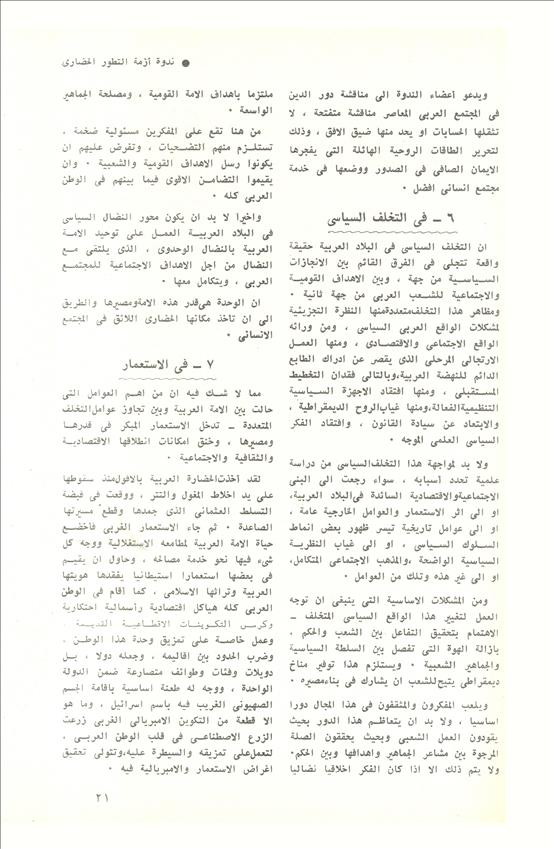 ● ندوة أزمة التطور الحضارى
ويدعو أعضاء الندوة الى مناقشة دور الدين
فى المجتمع العربى المعاصر مناقشة متفتحة ، لا
تثقلها الحسابات او يحد منها ضيق الافق ، وذلك
لتحرير الطاقات الروحية الهائلة التى يفجرها
الايمان الصافى فى الصدور ووضعها فى خدمة
مجتمع انسانى افضل ٠
٦ ـ فى التخلف السياسى
ان التخلف السياسى فى البلاد العربية حقيقة
واقعة تتجلى فى الفرق القائم بين الانجازات
السياسية من جهة ، وبين الاهداف القومية
والاجتماعية للشعب العربى من جهة ثانية ٠
ومظاهر هذا التخلف متعددة منها النظرة التجزيئية
لمشكلات الواقع العربى السياسى ، ومن ورائه
الواقع الاجتماعى والاقتصادى ، ومنها العمل
الارتجالى المرحلى الذى يقصر عن ادراك الطابع
الدائم للنهضة العربية، وبالتالى فقدان التخطيط
المستقبلى ، ومنها افتقاد الاجهزة السياسية
التنظيمية الفعالة، ومنها غياب الروح الديمقراطية ،
والابتعاد عن سيادة القانون ، وافتقاد الفكر
السياسى العلمى الموجه ٠
ولا بد لمواجهة هذا التخلف السياسى من دراسة
علمية تعدد اسبابه ، سواء رجعت الى البنى
الاجتماعية والاقتصادية السائدة فى البلاد العربية،
او الى اثر الاستعمار والعوامل الخارجية عامة ،
او الى عوامل تاريخية تيسر ظهور بعض انماط
السلوك السياسى ، او الى غياب النظرية
السياسية الواضحة ، والمذهب الاجتماعى المتكامل،
او الى غير هذه وتلك من العوامل ٠
ومن المشكلات الاساسية التى ينبغى ان توجه
العمل لتغيير هذا الواقع السياسى المتخلف ـ
الاهتمام بتحقيق التفاعل بين الشعب والحكم ،
بازالة الهوة التى تفصل بين السلطة السياسية
والجماهير الشعبية ٠ ويستلزم هذا توفير مناخ
ديمقراطى يتيح للشعب ان يشارك فى بناء مصيره ٠
ويلعب المفكرون والمثقفون فى هذا المجال دورا
اساسيا ، ولا بد ان يتعاظم هذا الدور بحيث
يقودون العمل الشعبى وبحيث يحققون الصلة
المرجوة بين مشاعر الجماهير واهدافها وبين الحكم٠
ولا يتم ذلك الا اذا كان الفكر اخلاقيا نضاليا
ملتزما باهداف الامة القومية ، ومصلحة الجماهير
الواسعة ٠
من هنا تقع على المفكرين مسئولية ضخمة ،
تستلزم منهم التضحيات ، وتفرض عليهم ان
يكونوا رسل الاهداف القومية والشعبية ٠ وان
يقيموا التضامن الاقوى فيما بينهم فى الوطن
العربى كله ٠
واخيرا لا بد ان يكون محور النضال السياسى
فى البلاد العربية العمل على توحيد الامة
العربية بالنضال الوحدوى ، الذى يلتقى مع
النضال من اجل الاهداف الاجتماعية للمجتمع
العربى ، ويتكامل معها ٠
ان الوحدة هى قدر هذه الامة ومصيرها والطريق
الى ان تاخذ مكانها الحضارى اللائق فى المجتمع
الانسانى ٠
٧ ـ فى الاستعمار
مما لا شك فيه ان من اهم العوامل التى
حالت بين الامة العربية وبين تجاوز عوامل التخلف
المتعددة ـ تدخل الاستعمار المبكر فى قدرها
ومصيرها ، وخنق امكانات انطلاقها الاقتصادية
والثقافية والاجتماعية ٠
لقد أخذت الحضارة العربية بالافول منذ سقوطها
على يد اخلاط المغول والتتر ، ووقعت فى قبضة
التسلط العثمانى الذى جمدها وقطع مسيرتها
الصاعدة ٠ ثم جاء الاستعمار الغربى فاخضع
حياة الامة العربية لمطامعه الاستغلالية ووجه كل
شىء فيها نحو خدمة مصالحه ، وحاول ان يقيم
فى بعضها استعمارا استيطانيا يفقدها هويتها
العربية وتراثها الاسلامى ، كما اقام فى الوطن
العربى كله هياكل اقتصادية رأسمالية احتكارية
وكرس التكوينات الاقطاعية القديمة ٠
وعمل خاصة على تمزيق وحدة هذا الوطن ،
وضرب الحدود بين اقاليمه ، وجعله دولا ، بل
دويلات وفئات وطوائف متصارعة ضمن الدولة
الواحدة ، ووجه له طعنة اساسية باقامة الجسم
الصهيونى الغريب فيه باسم اسرائيل ، وما هو
الا قطعة من التكوين الامبريالى الغربى زرعت
الزرع الاصطناعى فى قلب الوطن العربى ،
لتعمل على تمزيقه والسيطرة عليه، وتتولى تحقيق
اغراض الاستعمار والامبريالية فيه ٠
٢١